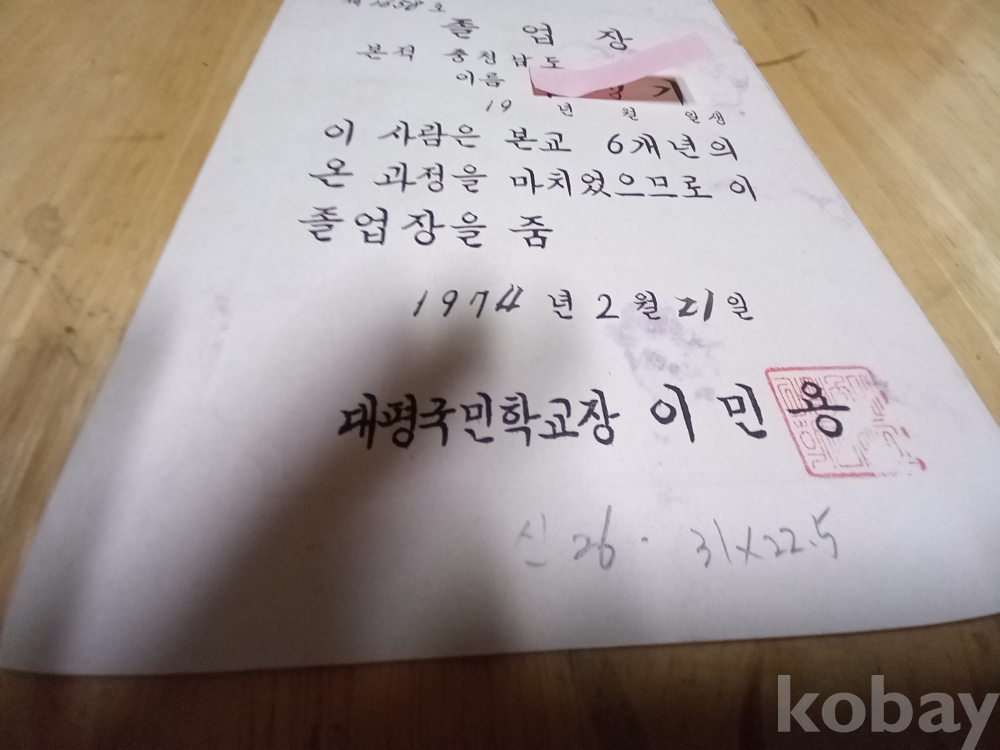 제 1058 호
졸 업 장
본적 충청남도
이름
19 년 월 일생
이 사람은 본교 6개년의
온 과정을 마치었으므로 이
졸업장을 줌
1974 년 2 월 21 일
대평국민학교장 이 민 용
신 26 · 31×22.5
kobay